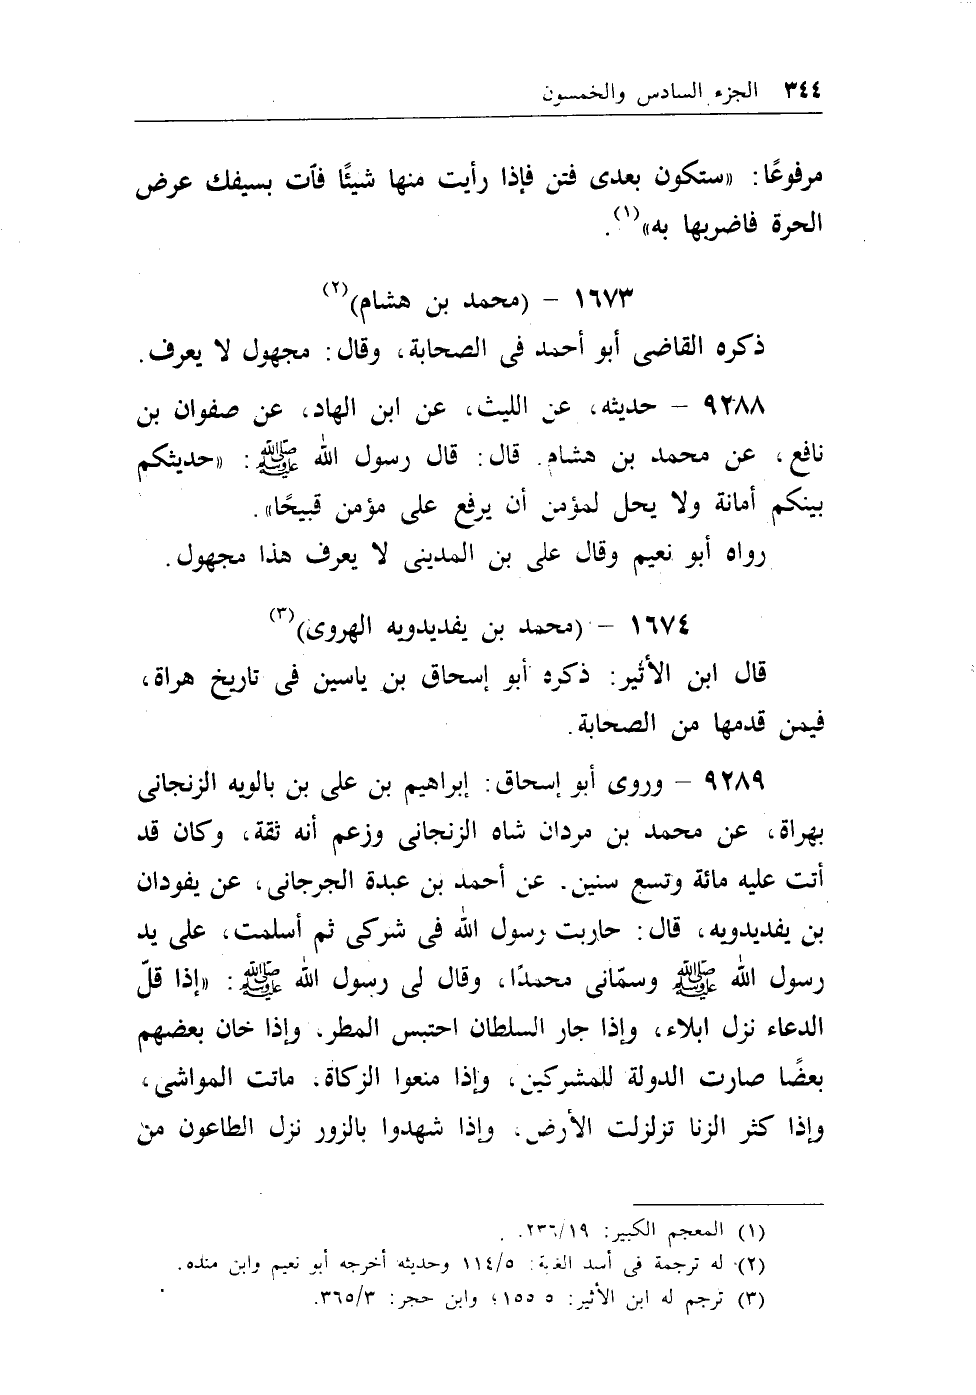 ٣٤٤ الجزء السادس والخمسون
مرفوعًا: «ستكون بعدى فتن فإذا رأيت منها شيئًا فآت بسيفك عرض
الحرة فاضربها به»(١).
١٦٧٣ – (محمد بن هشام)(٢)
ذكره القاضى أبو أحمد فى الصحابة، وقال: مجهول لا يعرف.
٩٢٨٨ – حديثه، عن الليث، عن ابن الهاد، عن صفوان بن
نافع، عن محمد بن هشام. قال: قال رسول الله ﷺ: «حديثكم
بينكم أمانة ولا يحل لمؤمن أن يرفع على مؤمن قبيحًا».
رواه أبو نعيم وقال على بن المدينى لا يعرف هذا مجهول.
١٦٧٤ – (محمد بن يفديدويه الهروى)(٣)
قال ابن الأثير: ذكره أبو إسحاق بن ياسين فى تاريخ هراة،
فيمن قدمها من الصحابة.
٩٢٨٩ – وروى أبو إسحاق: إبراهيم بن على بن بالويه الزنجانى
بهراة، عن محمد بن مردان شاه الزنجانى وزعم أنه ثقة، وكان قد
أتت عليه مائة وتسع سنين. عن أحمد بن عبدة الجرجانى، عن يفودان
بن يفديدويه، قال: حاربت رسول الله فى شركى ثم أسلمت، على يد
رسول الله ﷺ وسمّانى محمدًا، وقال لى رسول الله ﷺ: «إذا قلّ
الدعاء نزل ابلاء، وإذا جار السلطان احتبس المطر. وإذا خان بعضهم
بعضًا صارت الدولة للمشركين، وإذا منعوا الزكاة. ماتت المواشى،
وإذا كثر الزنا تزلزلت الأرض. وإذا شهدوا بالزور نزل الطاعون من
(١) المعجم الكبير: ٢٣٦/١٩.
(٢) له ترجمة فى أسد الغبة: ١١٤/٥ وحديثه أخرجه أبو نعيم وابن منده.
(٣) ترجم له ابن الأثير: ٥ ١٥٥؛ وابن حجر: ٣٦٥/٣.